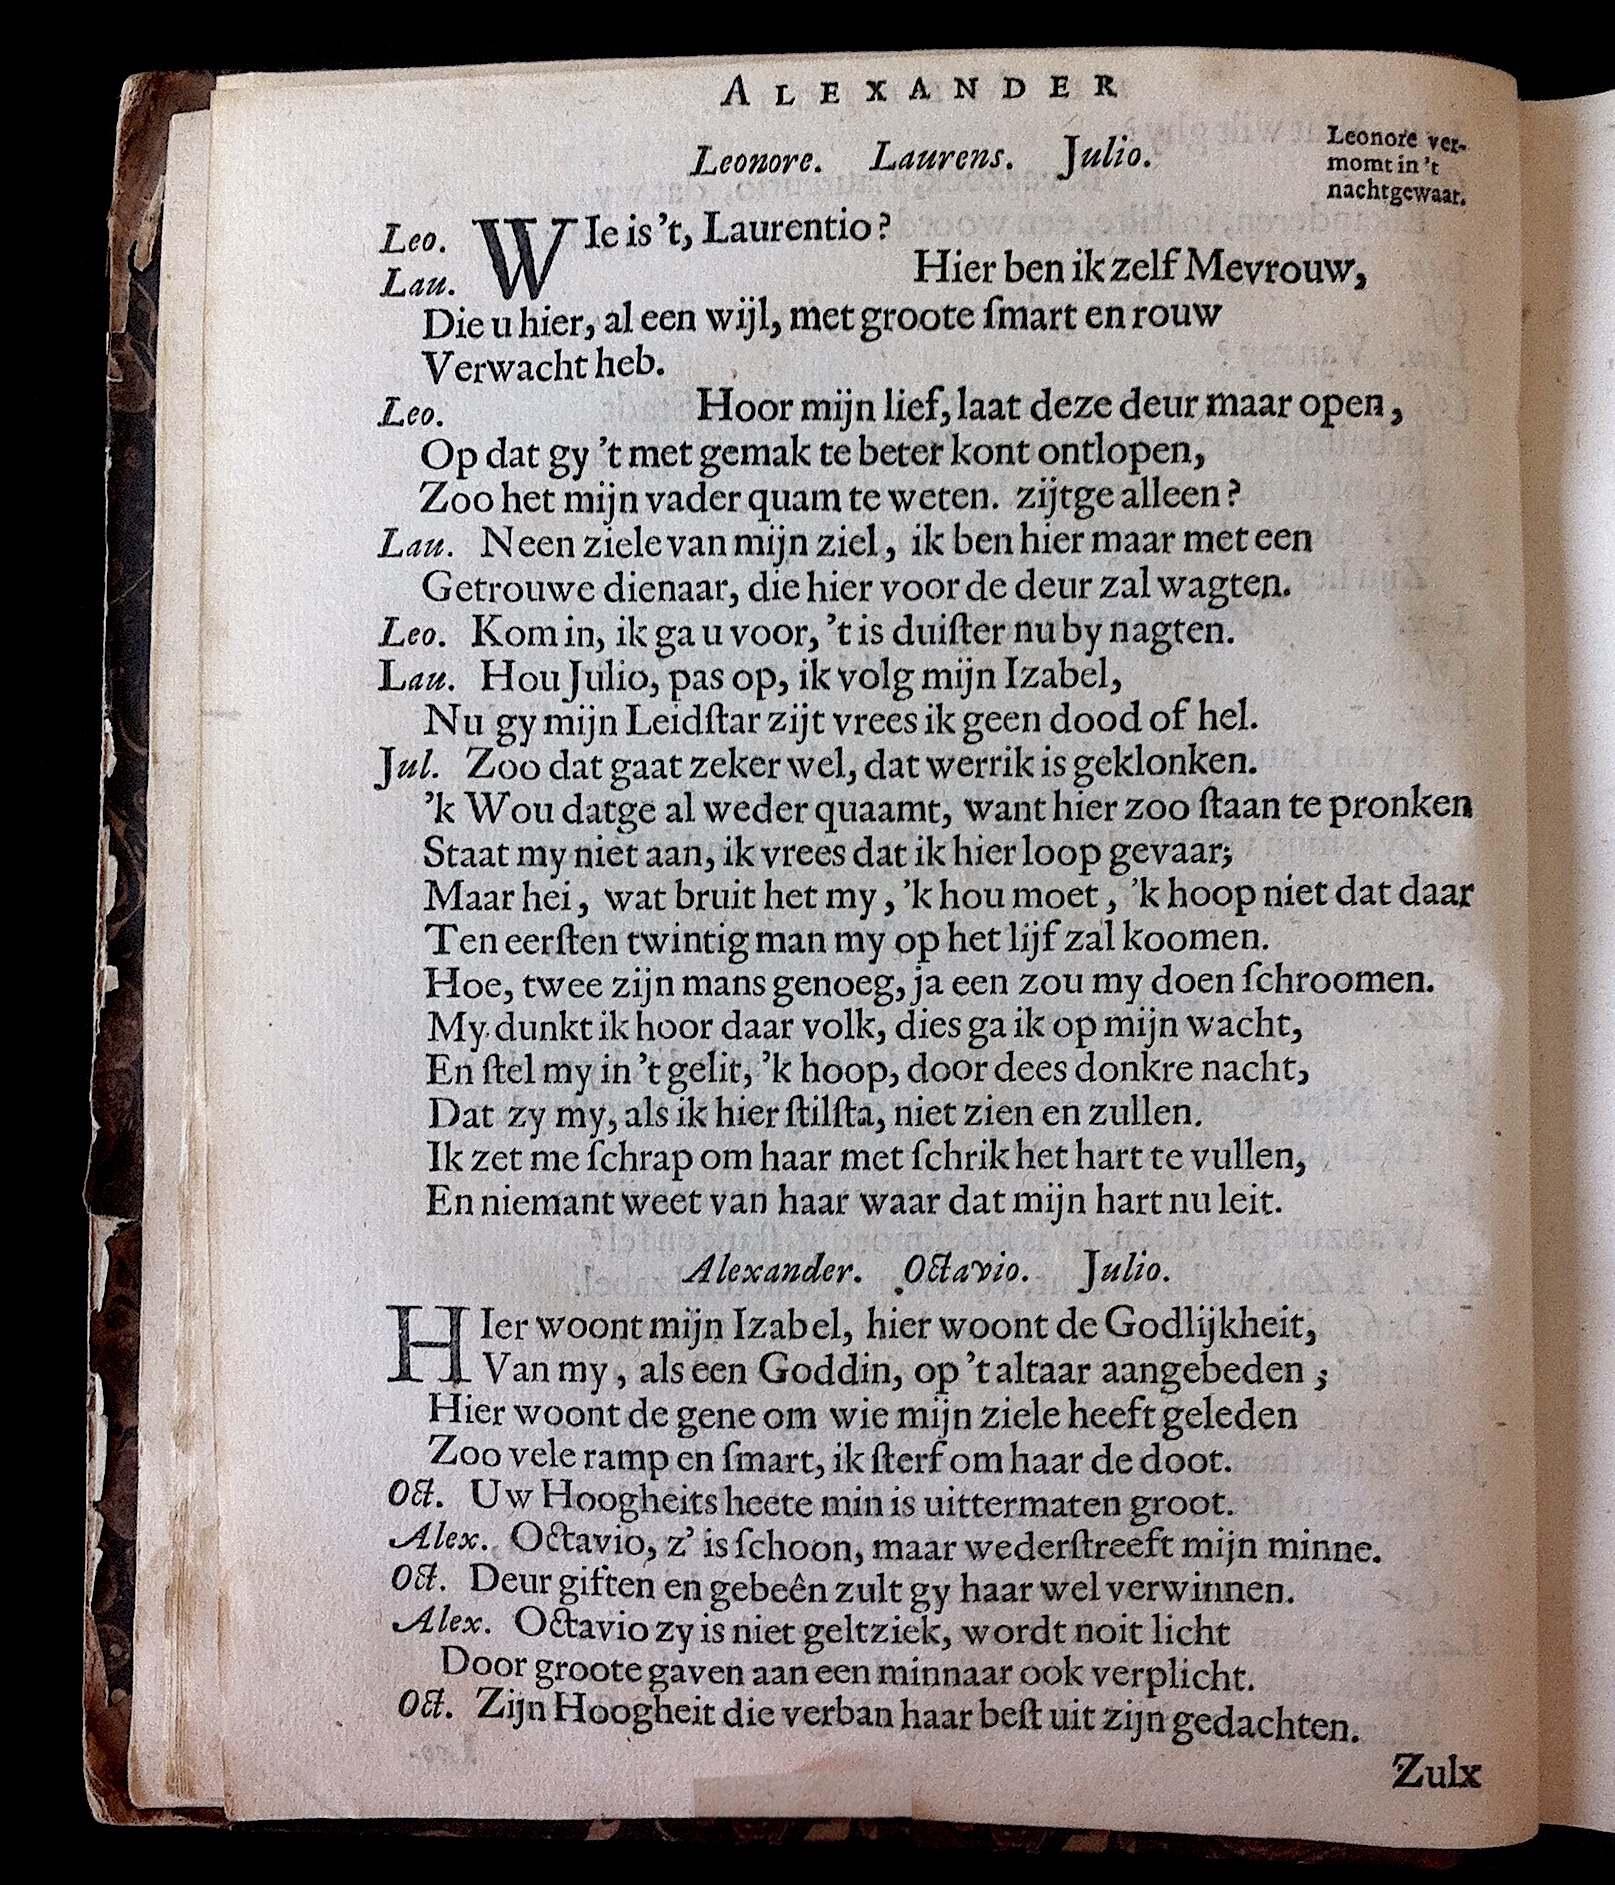 ALEXANDER
Leonore. Laurens. Julio.
Leonore ver-
momt in 't
nachtgewaar.
Leo. WIe is 't, Laurentio?
Lau. Hier ben ik zelf Mevrouw,
Die u hier, al een wijl, met groote ſmart en rouw
Verwacht heb.
Leo. Hoor mijn lief, laat deze deur maar open,
Op dat gy 't met gemak te beter kont ontlopen,
Zoo het mijn vader quam te weten. zijtge alleen?
Lau. Neen ziele van mijn ziel, ik ben hier maar met een
Getrouwe dienaar, die hier voor de deur zal wagten.
Leo. Kom in, ik ga u voor, 't is duiſter nu by nagten.
Lau. Hou Julio, pas op, ik volg mijn Izabel,
Nu gy mijn Leidſtar zijt vrees ik geen dood of hel.
Jul. Zoo dat gaat zeker wel, dat werrik is geklonken.
'k Wou datge al weder quaamt, want hier zoo ſtaan te pronken
Staat my niet aan, ik vrees dat ik hier loop gevaar;
Maar hei, wat bruit het my, 'k hou moet, 'k hoop niet dat daar
Ten eerſten twintig man my op het lijf zal koomen.
Hoe, twee zijn mans genoeg, ja een zou my doen ſchroomen.
My dunkt ik hoor daar volk, dies ga ik op mijn wacht,
En ſtel my in 't gelit, 'k hoop, door dees donkre nacht,
Dat zy my, als ik hier ſtilſta, niet zien en zullen.
Ik zet me ſchrap om haar met ſchrik het hart te vullen,
En niemant weet van haar waar dat mijn hart nu leit.
Alexander. Octavio. Julio.
HIer woont mijn Izabel, hier woont de Godlijkheit,
Van my, als een Goddin, op 't altaar aangebeden;
Hier woont de gene om wie mijn ziele heeft geleden
Zoo vele ramp en ſmart, ik ſterf om haar de doot.
Oct. Uw Hoogheits heete min is uittermaten groot.
Alex. Octavio, z' is ſchoon, maar wederſtreeft mijn minne.
Oct. Deur giften en gebeên zult gy haar wel verwinnen.
Alex. Octavio zy is niet geltziek, wordt noit licht
Door groote gaven aan een minnaar ook verplicht.
Oct. Zijn Hoogheit die verban haar beſt uit zijn gedachten.
Zulx